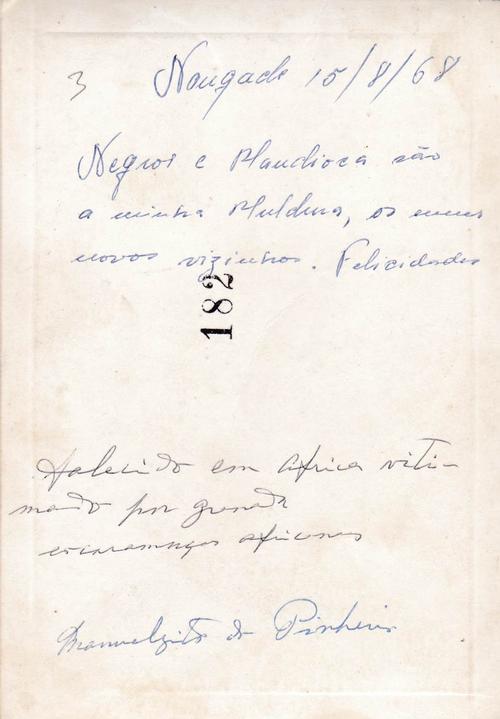 3
Nangade 15/8/68
Negros e Mandioca são
a minha Muldura, os meus
novos vizinhos. Felicidades
182
Falecido em Africa viti-
mado por granada
escaramuças africanas
Manuelzito do Pinheiro